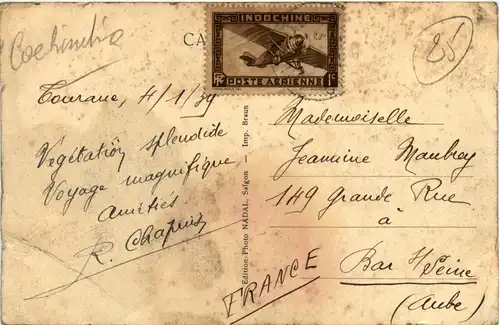 Cochinchine
CA
INDOCHINE
RF POSTE AERIENNE 1c
25
Tourane, 4/1/39
Végétation splendide
Voyage magnifique
Amitiés
R. Chapuis
Édition Photo NADAL, Saïgon - Imp. Braun
Mademoiselle
Jeannine Maubrey
149 Grande Rue
à
Bar s/ Seine
(Aube)
FRANCE